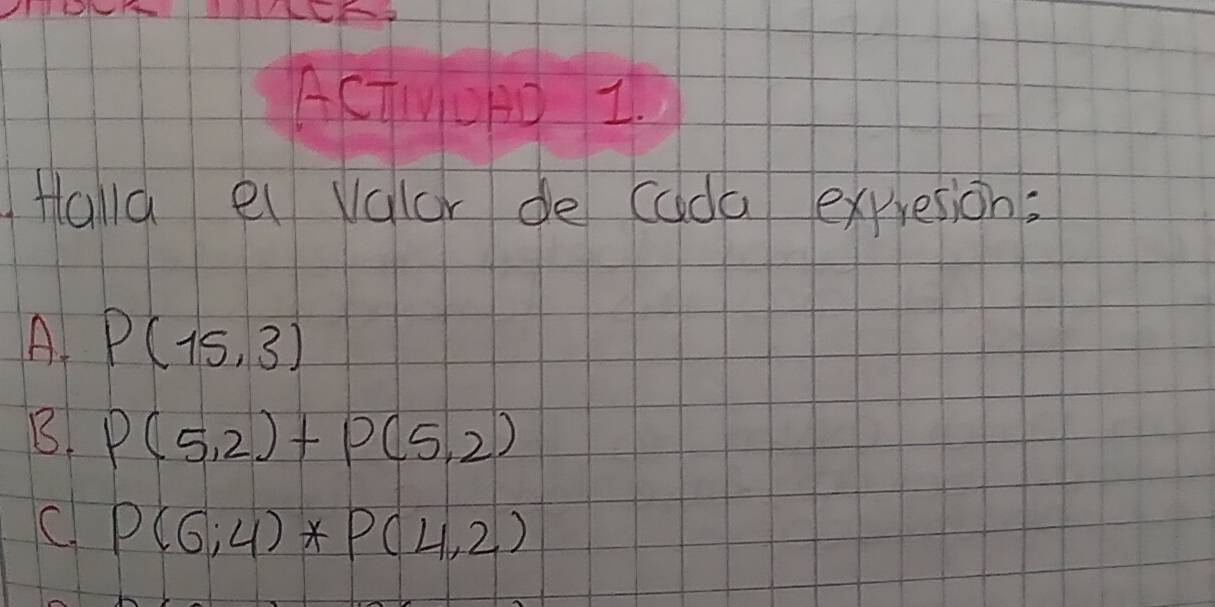 ACTIVIDAD 1.
Halla el valor de cada expresión:
A. P(15,3)
B. P(5,2) + P(5,2)
C. P(6;4) * P(4,2)